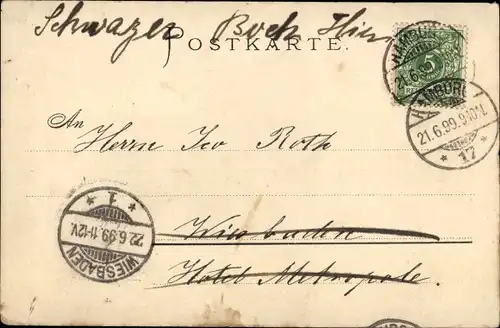 Schwazer Bock Hier
POSTKARTE.
HAMBURG
21.6.99
5
HAMBURG
21.6.99.9-10N.
* 17 *
An
Herrn Leo Roth
* 1 *
22.6.99.11-12V.
WIESBADEN
Wiesbaden
Hotel Metropole.